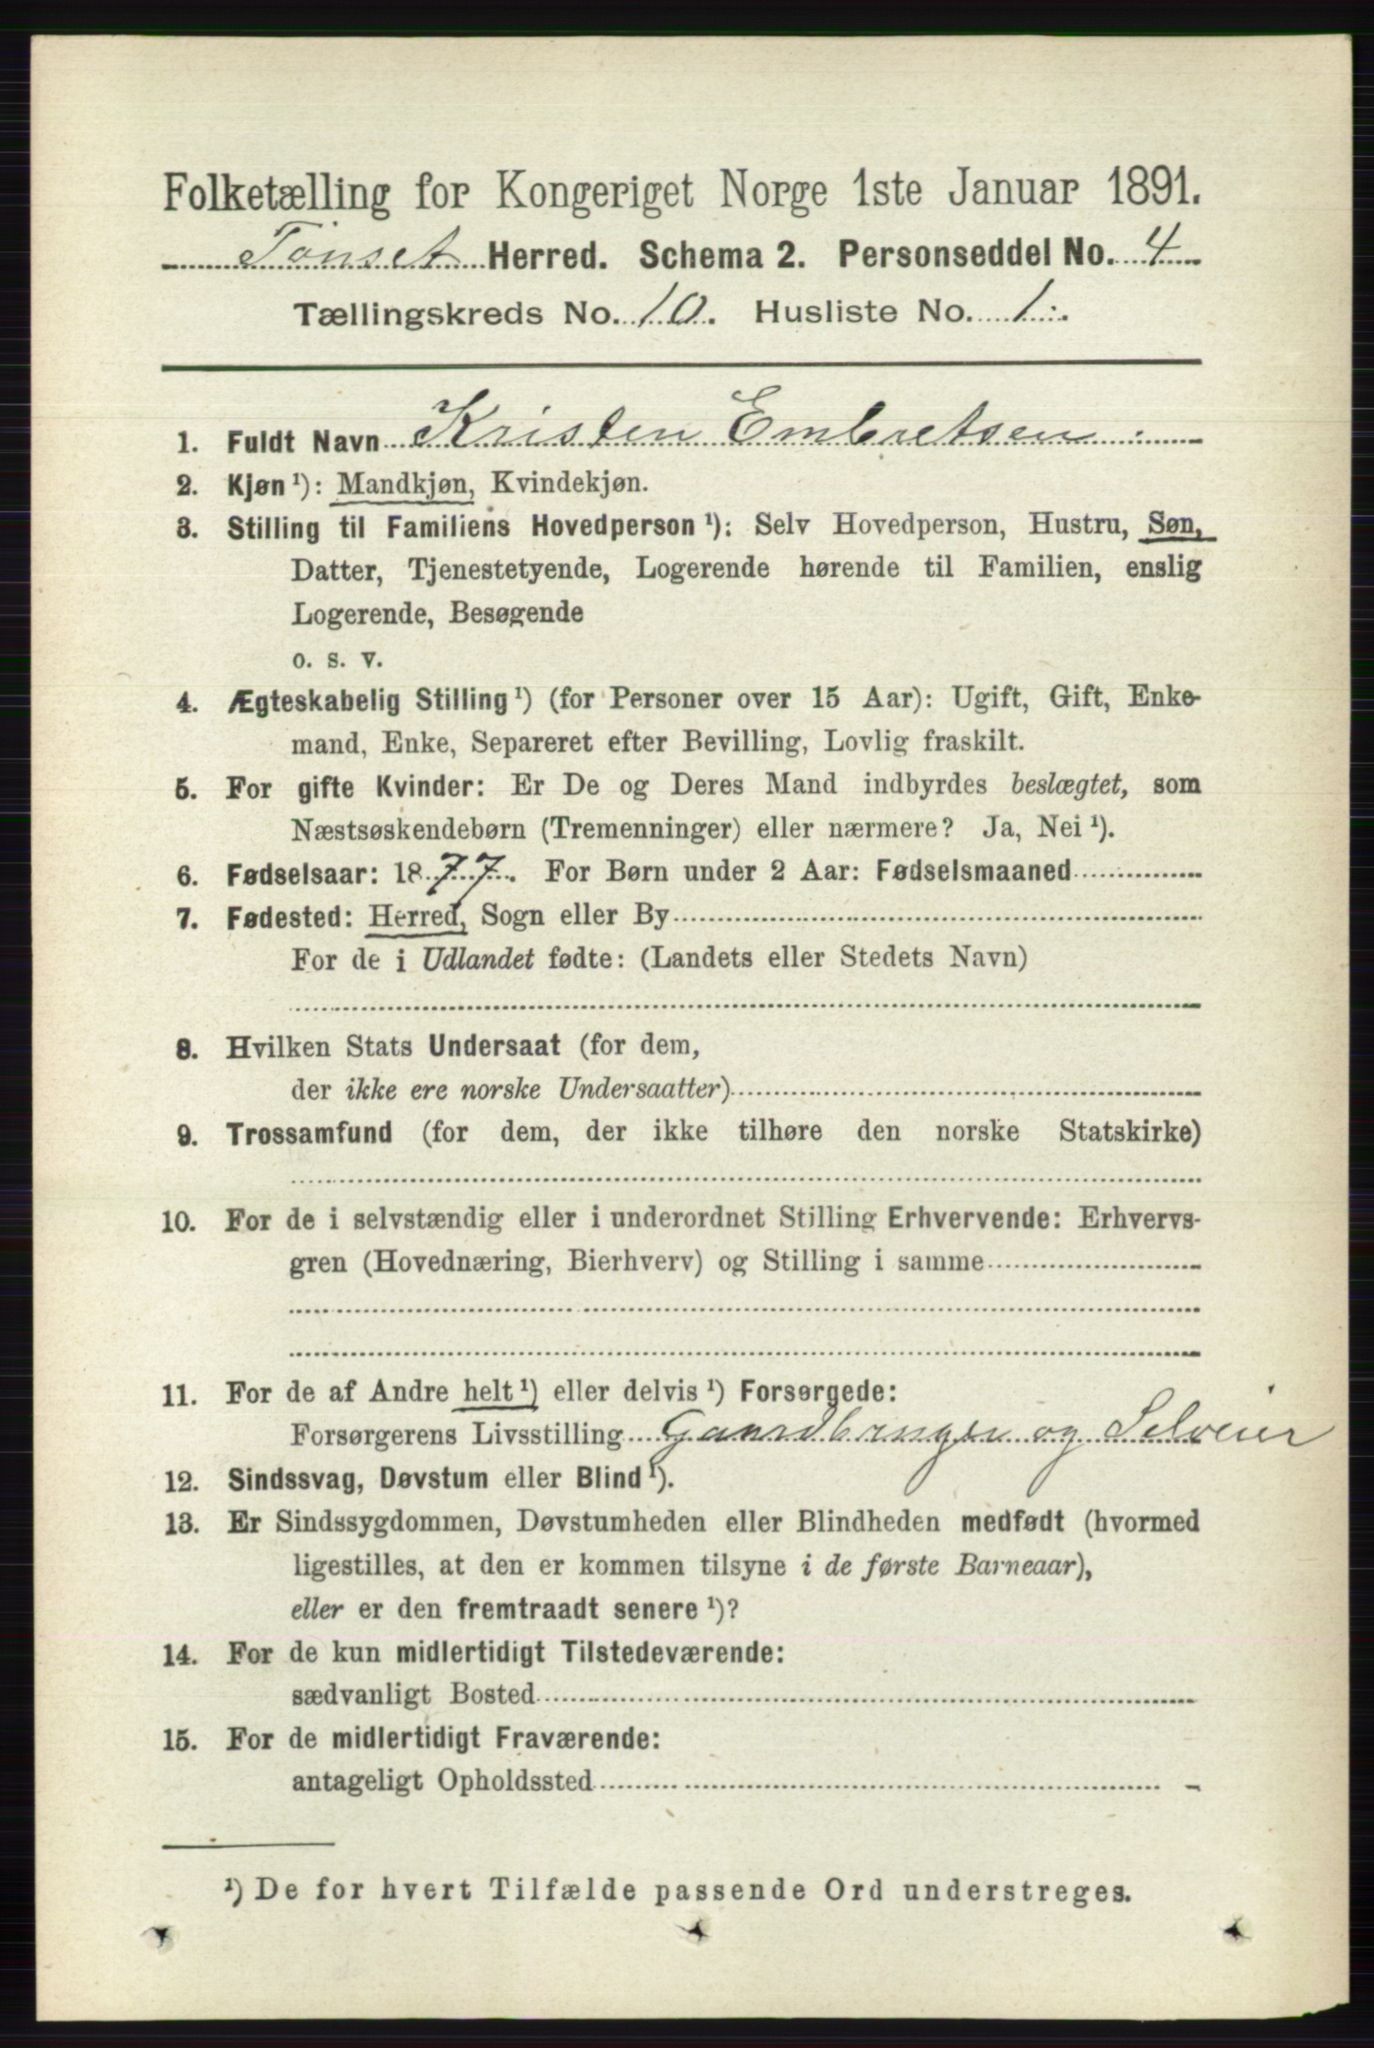 Folketælling for Kongeriget Norge 1ste Januar 1891.
Tønset Herred. Schema 2. Personseddel No. 4
Tællingskreds No. 10. Husliste No. 1.
1. Fuldt Navn Kristen Embretsen
2. Kjøn ¹): Mandkjøn, Kvindekjøn.
3. Stilling til Familiens Hovedperson ¹): Selv Hovedperson, Hustru, Søn,
Datter, Tjenestetyende, Logerende hørende til Familien, enslig
Logerende, Besøgende
o. s. v.
4. Ægteskabelig Stilling ¹) (for Personer over 15 Aar): Ugift, Gift, Enke-
mand, Enke, Separeret efter Bevilling, Lovlig fraskilt.
5. For gifte Kvinder: Er De og Deres Mand indbyrdes beslægtet, som
Næstsøskendebørn (Tremenninger) eller nærmere? Ja, Nei ¹).
6. Fødselsaar: 1877. For Børn under 2 Aar: Fødselsmaaned
7. Fødested: Herred, Sogn eller By
For de i Udlandet fødte: (Landets eller Stedets Navn)
8. Hvilken Stats Undersaat (for dem,
der ikke ere norske Undersaatter)
9. Trossamfund (for dem, der ikke tilhøre den norske Statskirke)
10. For de i selvstændig eller i underordnet Stilling Erhvervende: Erhvervs-
gren (Hovednæring, Bierhverv) og Stilling i samme
11. For de af Andre helt ¹) eller delvis ¹) Forsørgede:
Forsørgerens Livsstilling Gaardbruger og Selveier
12. Sindssvag, Døvstum eller Blind ¹).
13. Er Sindssygdommen, Døvstumheden eller Blindheden medfødt (hvormed
ligestilles, at den er kommen tilsyne i de første Barneaar),
eller er den fremtraadt senere ¹)?
14. For de kun midlertidigt Tilstedeværende:
sædvanligt Bosted
15. For de midlertidigt Fraværende:
antageligt Opholdssted
¹) De for hvert Tilfælde passende Ord understreges.